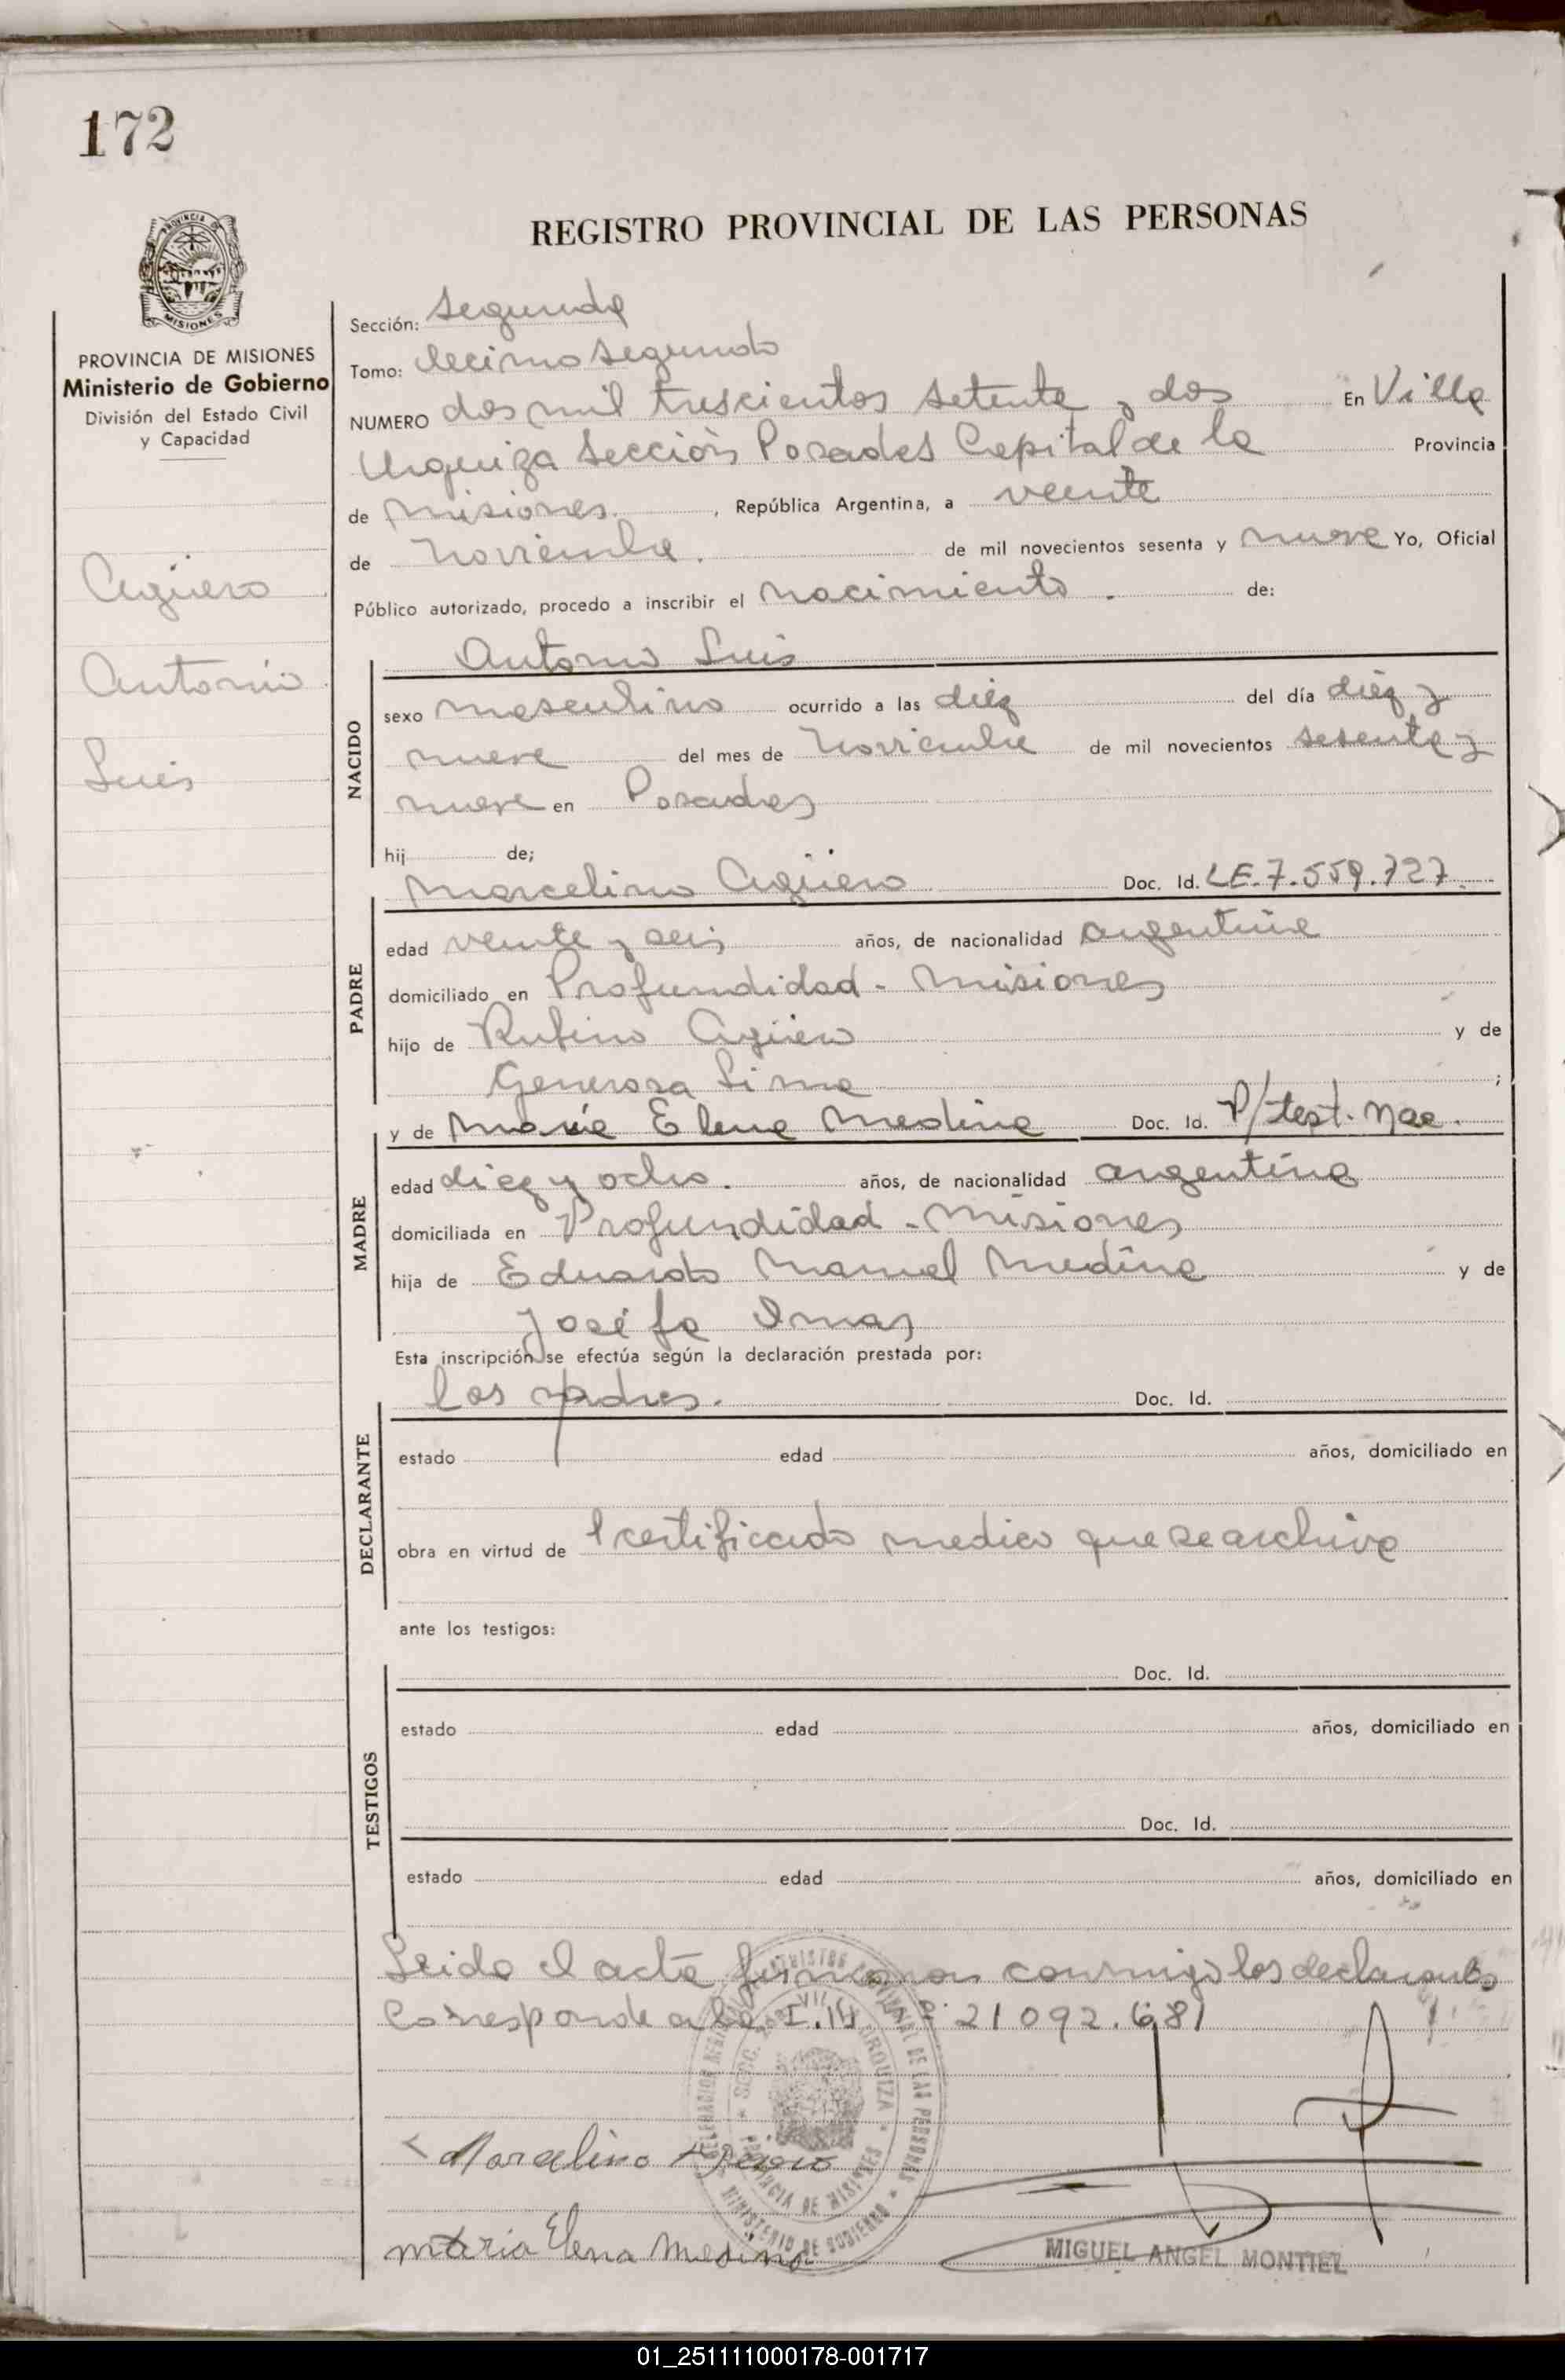 172
REGISTRO PROVINCIAL DE LAS PERSONAS
PROVINCIA
MISIONES
PROVINCIA DE MISIONES
Ministerio de Gobierno
División del Estado Civil
y Capacidad
Agüero
Antonio
Luis
Sección: Segunda
Tomo: Decimo Segundo
NUMERO dos mil trescientos setenta y dos En Villa
Urquiza Sección Posadas Capital de la Provincia
de Misiones. , República Argentina, a veinte
de Noviembre. de mil novecientos sesenta y nueve Yo, Oficial
Público autorizado, procedo a inscribir el nacimiento . de:
Antonio Luis
NACIDO
sexo masculino ocurrido a las diez del día diez y
nueve del mes de Noviembre de mil novecientos sesenta y
nueve en Posadas
hij de;
Marcelino Agüero Doc. Id. LE.7.559.727.
PADRE
edad veinte y seis años, de nacionalidad argentina
domiciliado en Profundidad - Misiones
hijo de Rufino Agüero y de
Generosa Lima ;
y de María Elena Medina Doc. Id. P/test. Nac.
MADRE
edad diez y ocho. años, de nacionalidad argentina
domiciliada en Profundidad - Misiones
hija de Eduardo Manuel Medina y de
Josefa
Esta inscripción se efectúa según la declaración prestada por:
los padres. Doc. Id.
DECLARANTE
estado edad años, domiciliado en
obra en virtud de l certificado medico que se archiva
ante los testigos:
Doc. Id.
TESTIGOS
estado edad años, domiciliado en
Doc. Id.
estado edad años, domiciliado en
Leida el acta firman conmigo los declarantes
Corresponde a la I.M 21 092.681
Marcelino Agüero
maria Elena Medina
MIGUEL ANGEL MONTIEL
01_251111000178-001717